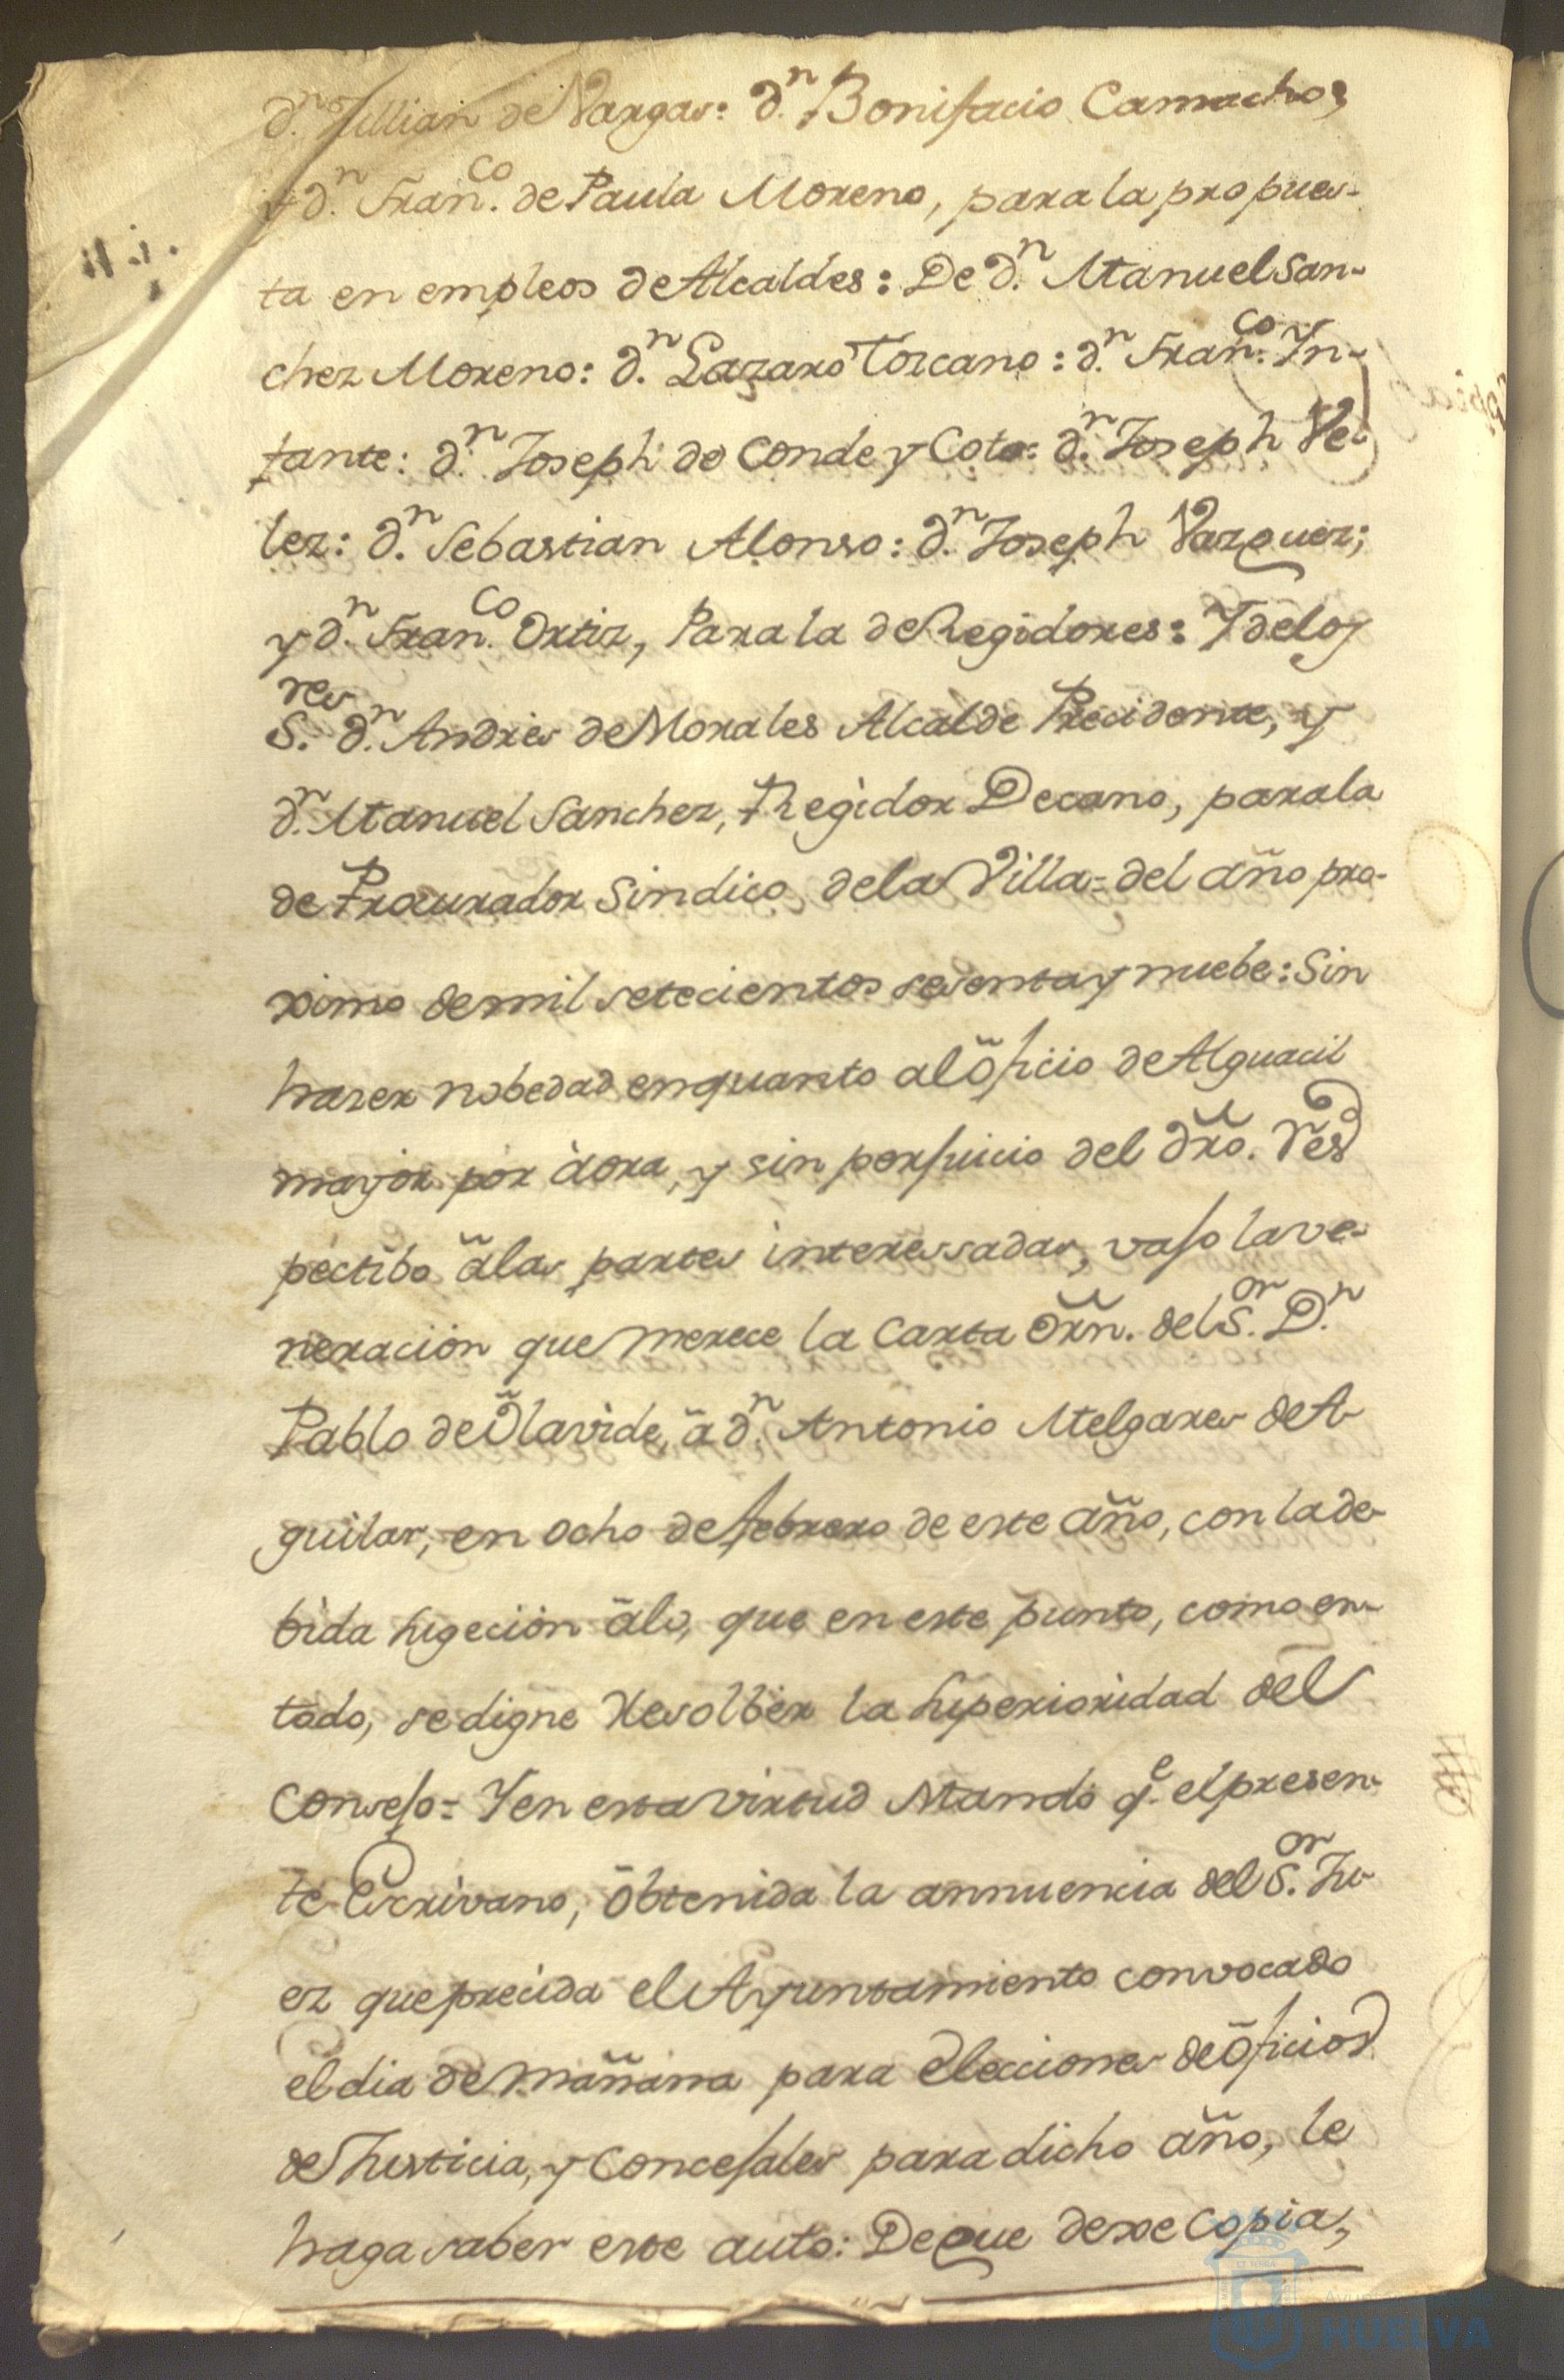 d.n Jillian de Vargas: d.n Bonifacio Camacho;
y d.n Fran.co de Paula Moreno, para la propues-
ta en empleos de Alcaldes: De d.n Manuel San-
chez Moreno: d.n Lazaro Toscano: d.n Fran.co In-
fante: d.n Joseph de Conde y Coto: d.n Joseph Ve-
lez: d.n Sebastian Alonso: d.n Joseph Vazquez;
y d.n Fran.co Ortiz, Para la de Regidores: Y de los
S.res d.n Andres de Morales Alcalde Precidente, y
d.n Manuel Sanchez, Regidor Decano, para la
de Procurador Sindico de la Villa = del año pro-
ximo de mil setecientos sesenta y nuebe: Sin
hazer nobedad en quanto al õficio de Alguacil
mayor por àora, y sin perjuicio del dr̃o. Res
pectibo ã las partes interessadas, vajo la ve-
neracion que merece la Carta õrn. del S.or D.n
Pablo de Õlavide, ã d.n Antonio Melgares de A-
guilar, en ocho de febrero de este año, con la de-
bida sugecion ã lo, que en este punto, como en
todo, se digne Resolber la superioridad del
Consejo = Y en esta virtud Mando q.e el presen-
te Escrivano, õbtenida la annuencia del S.or Ju-
ez que precida el Ayuntamiento convocado
el dia de mañana para elecciones de õficios
de Justicia, y Concejales para dicho año, le
haga saber este auto: De que dexe Copia,
Ayuntamiento de
HUELVA